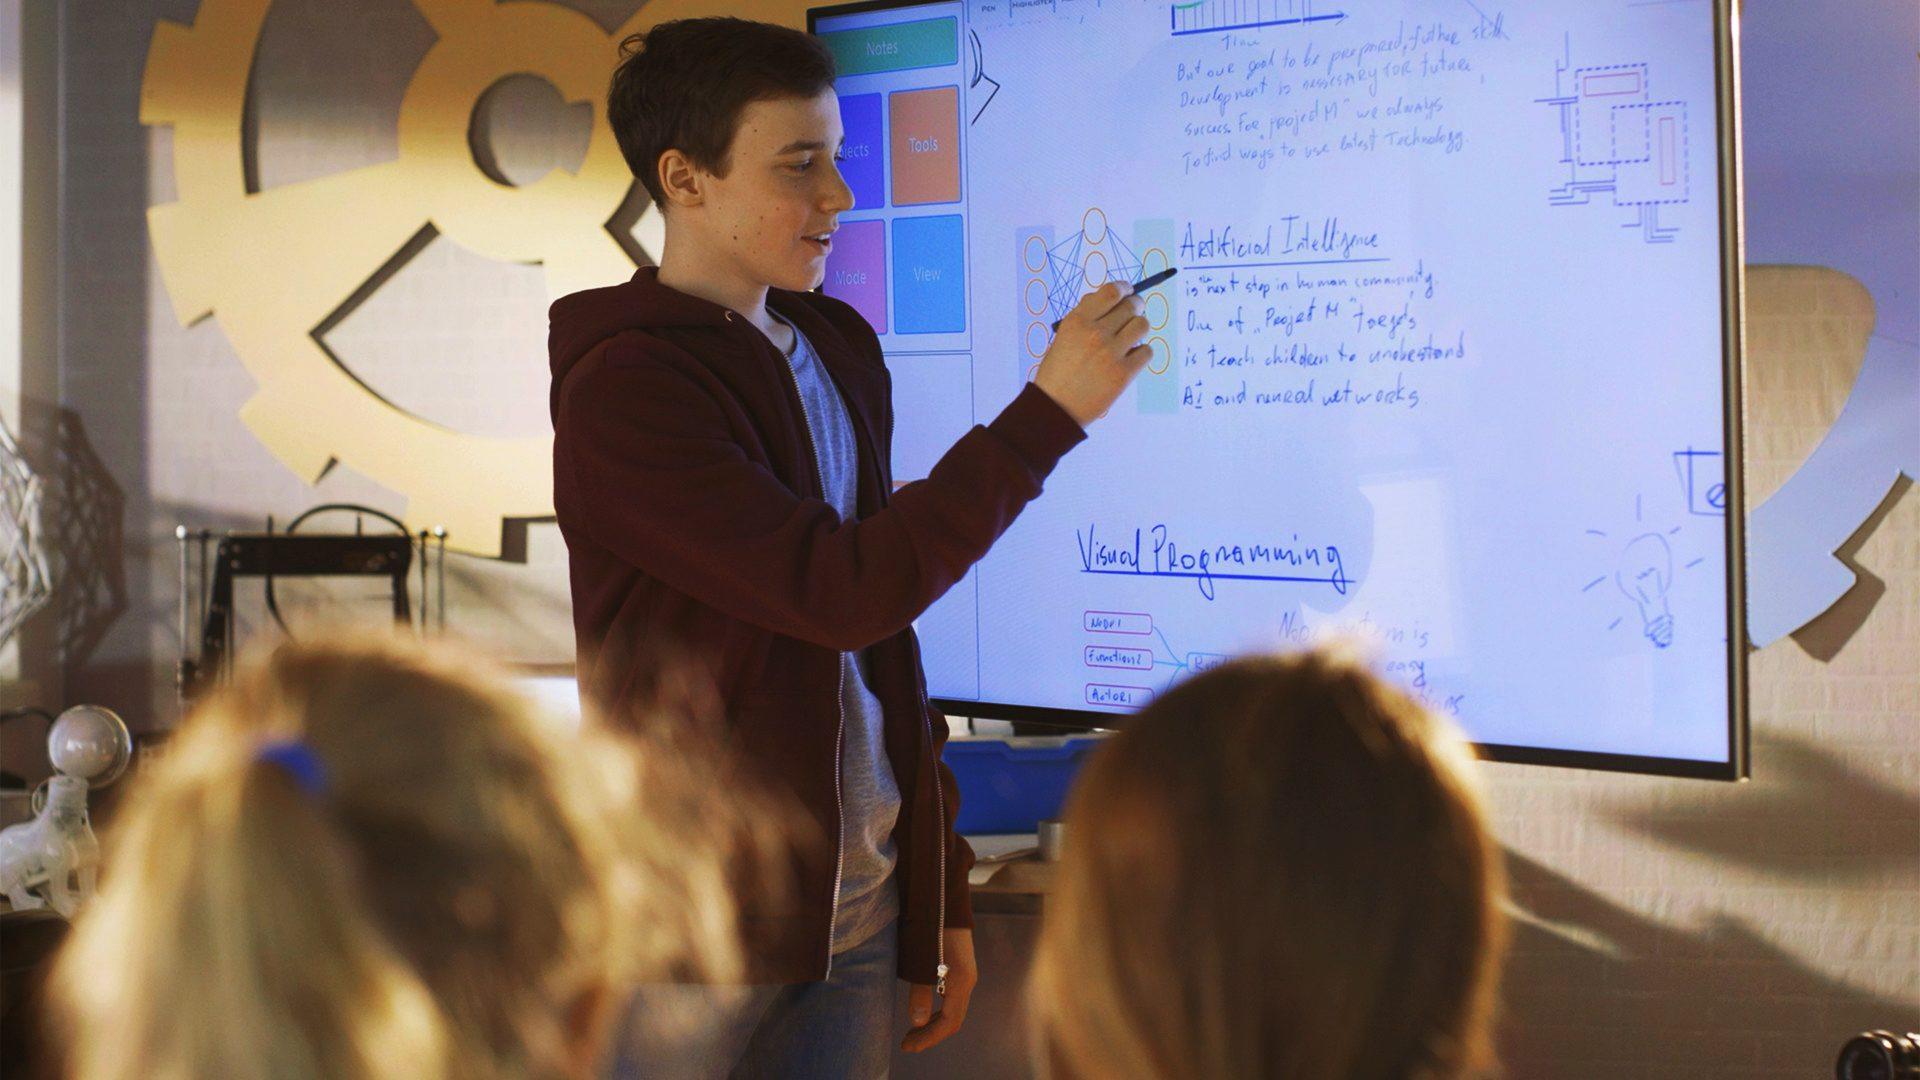 Notes
Tools
Mode
View
PEN HIGHLIGHTER
Time
But our goal to be prepared, futher skill
Development is nessesary for future
success. For "projed M" we always
To find ways to use latest Technology.
Artificial Intelligence
is the next step in human community.
One of „Projed M" targets
is teach children to undestand
AI and neural networks.
Visual Programming
Node1
Function2
Actor1
is
easy